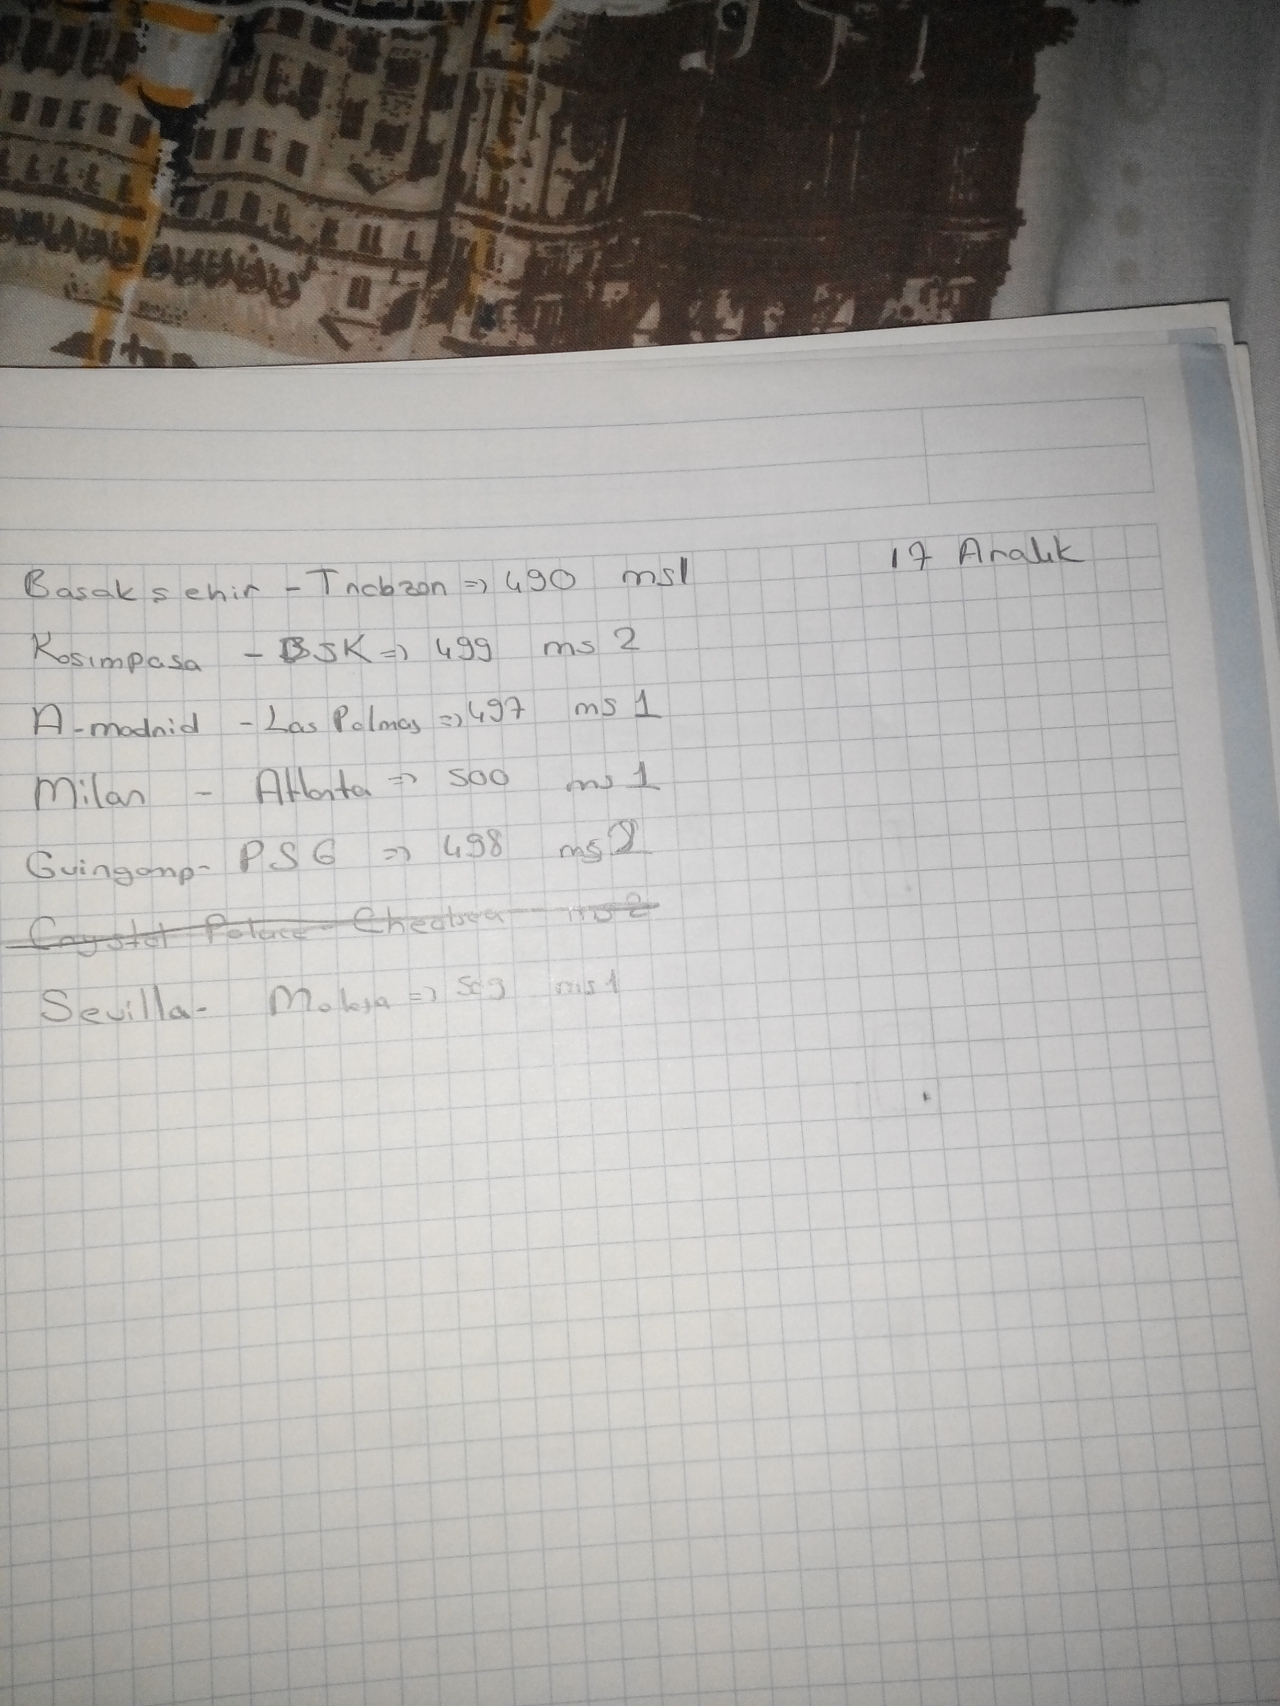 17 Aralık
Basaksehir - Trabzon => 490 ms1
Kasımpasa - BJK => 499 ms 2
A-madrid - Las Palmas => 497 ms 1
Milan - Atlanta => 500 ms 1
Guingamp- PSG => 498 ms 2
Crystal Palace - Cheatsea ms 2
Sevilla- => ms 1